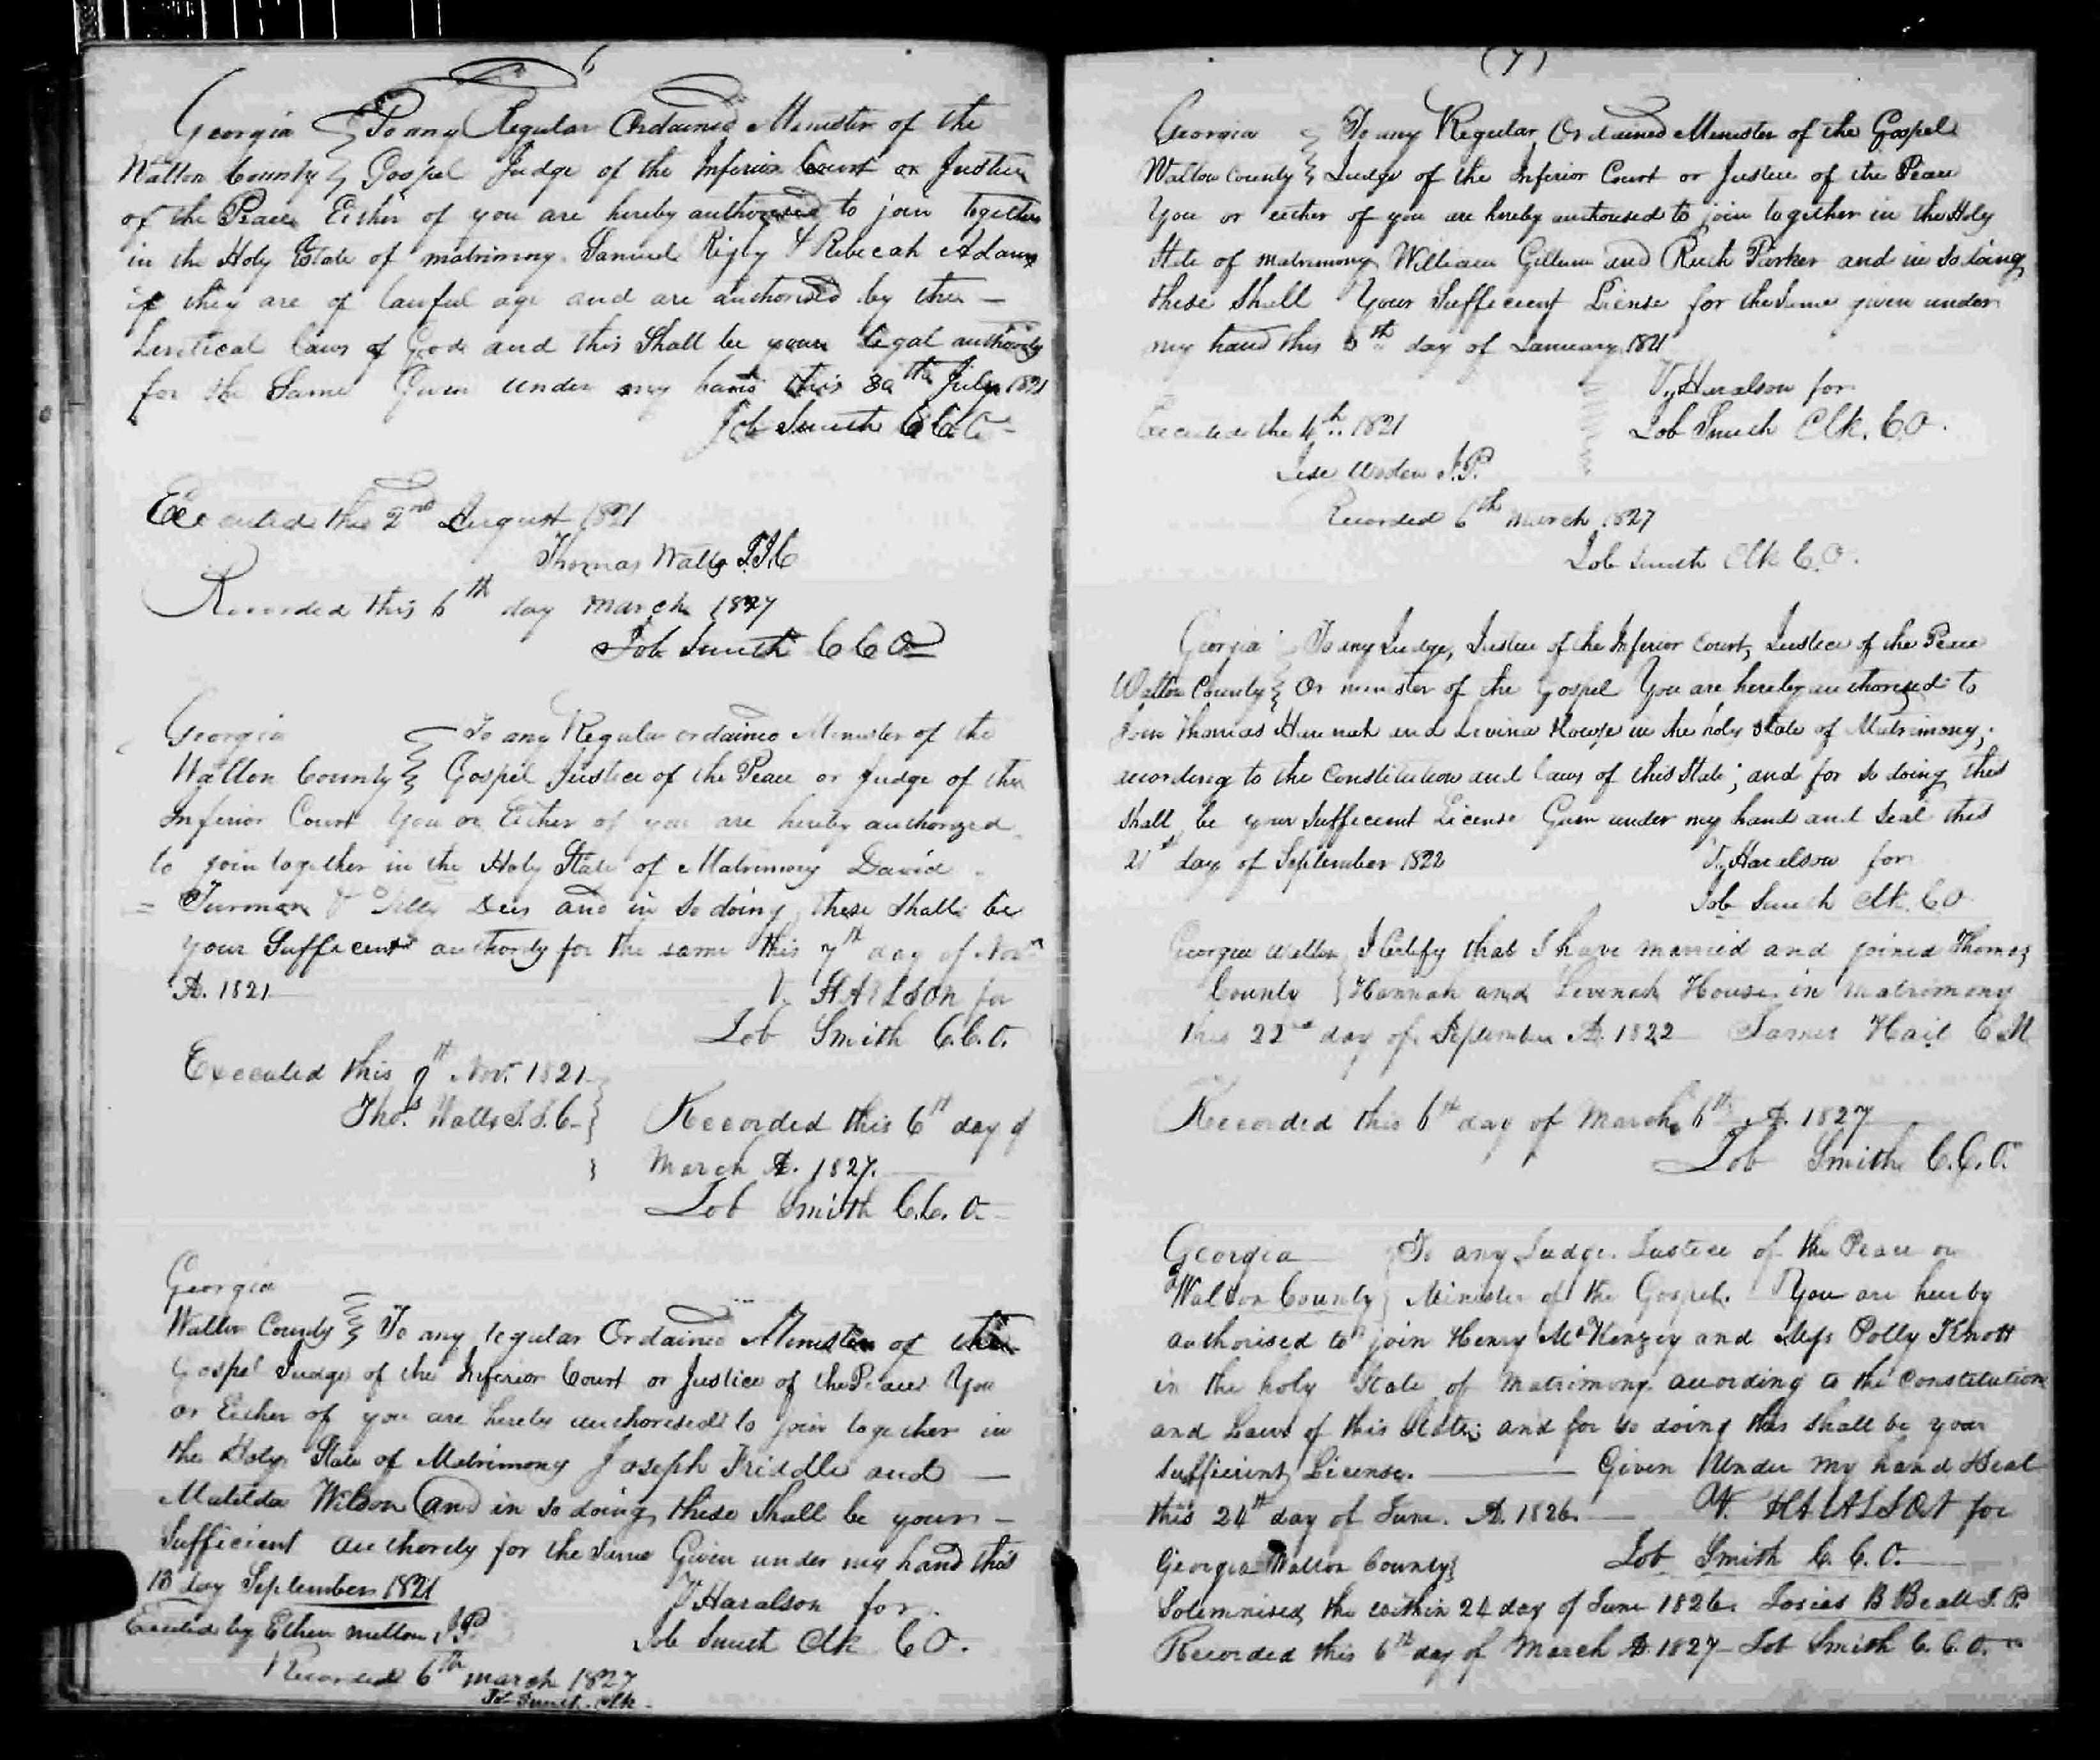 6
Georgia } To any Regular Ordained Minister of the
Walton County } Gospel Judge of the Inferior Court or Justice
of the Peace Either of you are hereby authorised to join together
in the Holy Estate of matrimony Samuel Rigby & Rebecah Adams
if they are of lawful age and are authorised by the —
Levitical laws of God and this Shall be your legal authority
for the Same Given under my hand this 30th July 1821
Job Smith C C O
Executed this 2nd August 1821
Thomas Watts J.I.C
Recorded this 6th day March 1827
Job Smith C C O
Georgia
Walton County } To any Regular ordained Minister of the
Gospel Justice of the Peace or Judge of the
Inferior Court You or Either of you are hereby authorized
to join together in the Holy State of Matrimony David
= Turman & Dees and in so doing these shall be
your Sufficent authority for the same this 7th day of Novr
A. 1821
V. HARLSON for
Job Smith C.C.O.
Executed this 9th Nov. 1821
Thos. Watts J.I.C.
Recorded this 6th day of
March A. 1827.
Job Smith C.C.O.
Georgia
Walton County } To any regular Ordained Minister of the
Gospel Judge of the Inferior Court or Justice of the Peace You
or Either of you are hereby authorised to join together in
the Holy State of Matrimony Joseph Friddle and —
Matilda Wilson and in so doing these shall be your —
Sufficient authority for the Same Given under my hand this
13 day September 1821
V Haralson for
Job Smith Clk C O.
Executed by Ethen Melton J.P.
Recorded 6th march 1827
Job Smith Clk
(7)
Georgia } To any Regular Ordained Minister of the Gospel
Walton County } Judge of the Inferior Court or Justice of the Peace
You or either of you are hereby authorised to join together in the Holy
State of matrimony William Gillum and Ruth Parker and in so doing
these Shall Your Sufficient License for the Same given under
my hand this 3th day of January 1821
V Haralson for
Job Smith Clk. C.O.
Executed the 4th 1821
J.P.
Recorded 6th March 1827
Job Smith Clk C.O.
Georgia } To any Judge, Justice of the Inferior Court, Justice of the Peace
Walton County } Or minister of the Gospel You are hereby authorized to
Join Thomas Hannah and Levina House in the holy state of Matrimony,
according to the Constitution and laws of this State; and for so doing this
shall be your sufficient License Given under my hand and seal this
21st day of September 1822
V Haralson for
Job Smith Clk. C.O
Georgia Walton } I Certify that I have married and joined Thomas
County } Hannah and Levinah House in Matrimony
this 22nd day of September A. 1822 James Hail C M
Recorded this 6th day of March 6th A. 1827
Job Smith C.C.O.
Georgia } To any Judge Justice of the Peace or
Walton County } Minister of the Gospel. You are hereby
authorised to join Henry McKenzey and Miss Polly Knott
in the holy State of Matrimony according to the Constitution
and Laws of this State; and for so doing this shall be your
sufficient License. — Given Under my hand & Seal
this 24th day of June. A. 1826. V. HARALSON for
Job Smith C.C.O.
Georgia Walton County }
Solemnised the within 24 day of June 1826. Josias B Beall J.P.
Recorded this 6th day of March A. 1827 — Job Smith C.C.O.